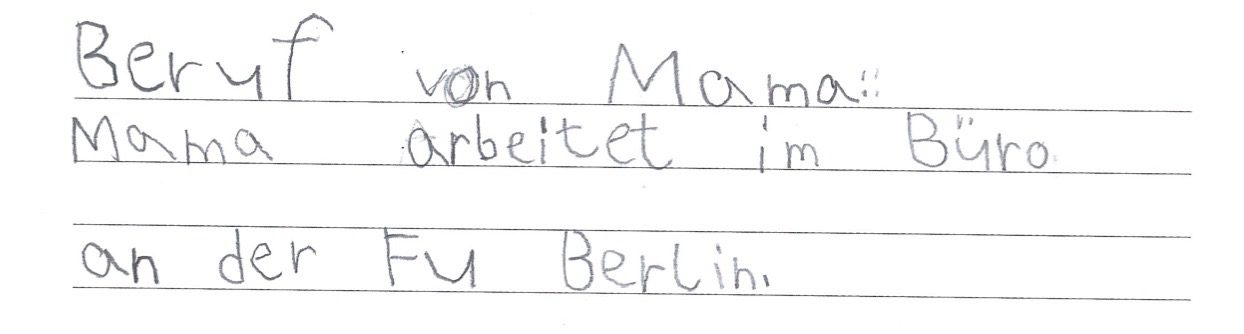 Beruf von Mama:
Mama arbeitet im Büro
an der Fu Berlin.